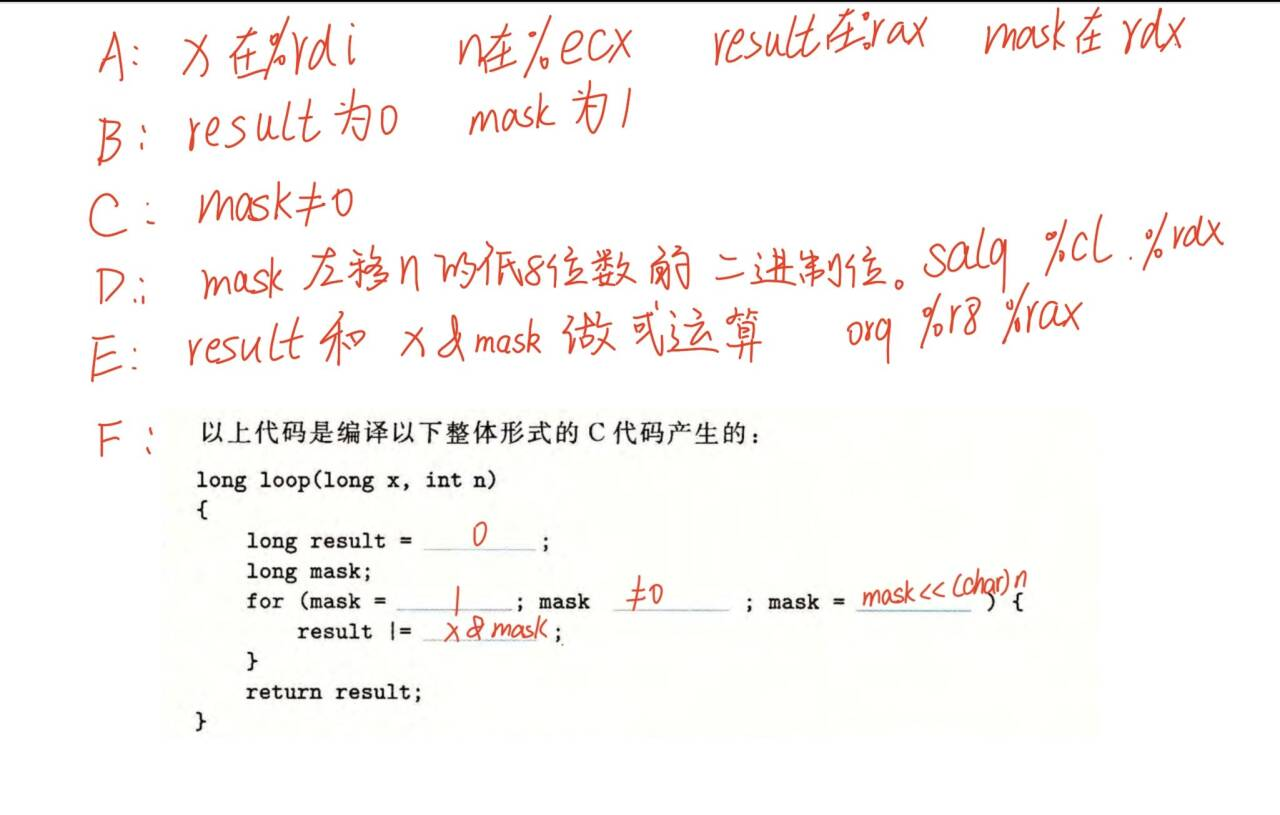 A: x在%rdi n在%ecx result在%rax mask在rdx
B: result为0 mask为1
C: mask≠0
D: mask左移n的低8位数的二进制位。salq %cl.%rdx
E: result和 x&mask做或运算 orq %r8 %rax
F: 以上代码是编译以下整体形式的C代码产生的:
long loop(long x, int n)
{
long result = 0 ;
long mask;
for (mask = 1 ; mask ≠0 ; mask = mask<<(char)n ) {
result |= x&mask ;
}
return result;
}